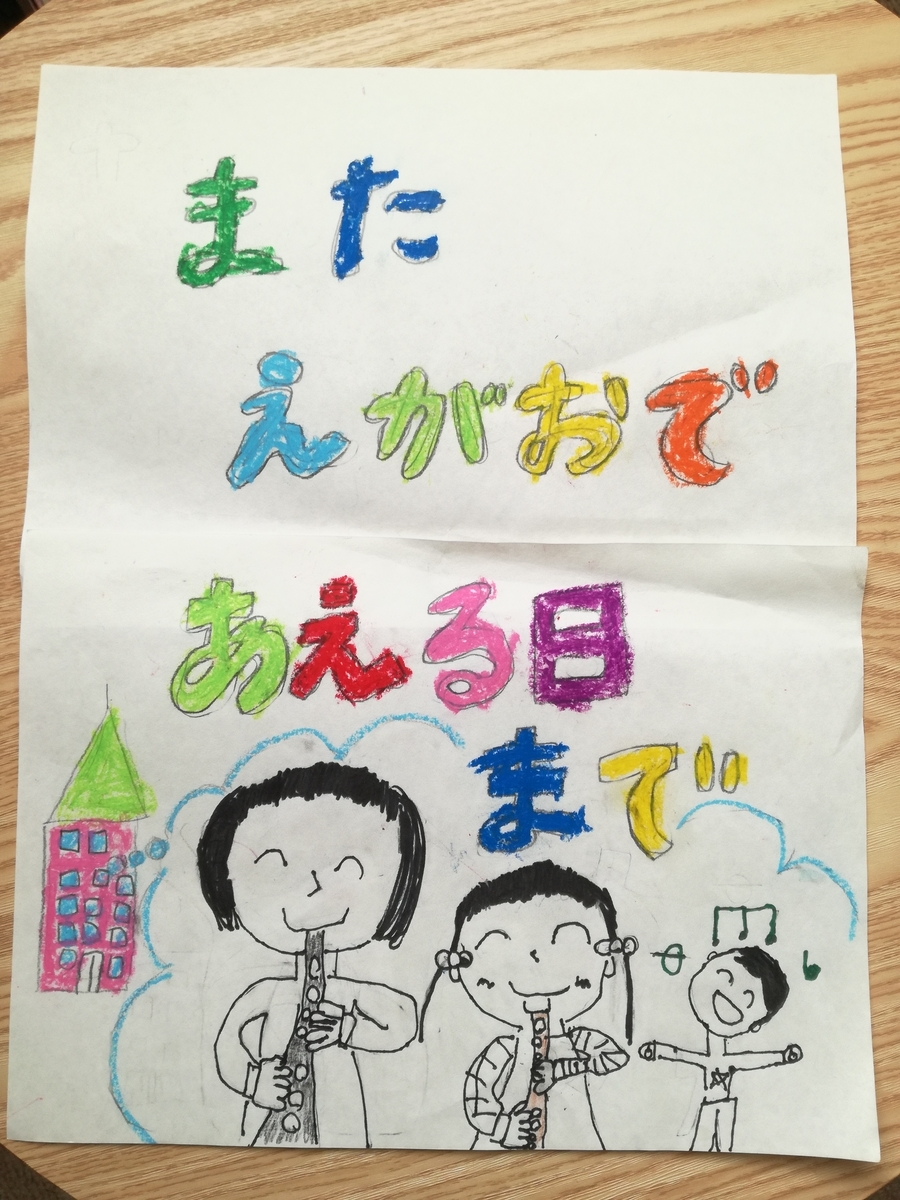 また
えがおで
あえる日
まで